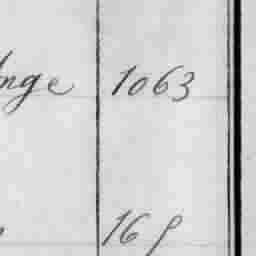 nge 1063
16